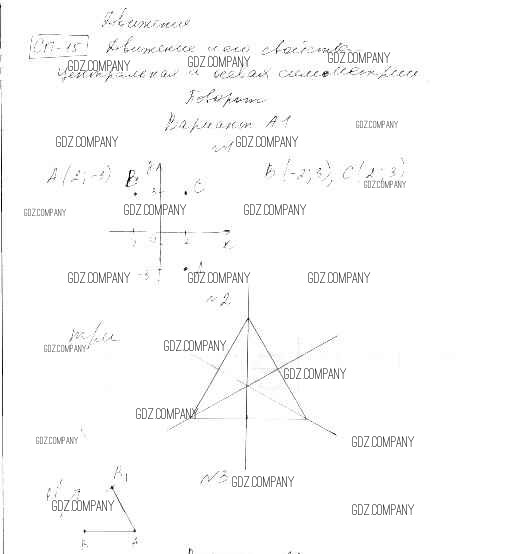 Движение
СП-15 Движение и его свойства.
Центральная и осевая симметрии.
Поворот
Вариант А1
№1
A(2;-3) B(-2;3), C(2;3)
B y C
-2 0 2 x
-3 A
№2
три
№3
B1
B A
GDZ.COMPANY
GDZ.COMPANY
GDZ.COMPANY
GDZ.COMPANY
GDZ.COMPANY
GDZ.COMPANY
GDZ.COMPANY
GDZ.COMPANY
GDZ.COMPANY
GDZ.COMPANY
GDZ.COMPANY
GDZ.COMPANY
GDZ.COMPANY
GDZ.COMPANY
GDZ.COMPANY
GDZ.COMPANY
GDZ.COMPANY
GDZ.COMPANY
GDZ.COMPANY
GDZ.COMPANY
GDZ.COMPANY
GDZ.COMPANY